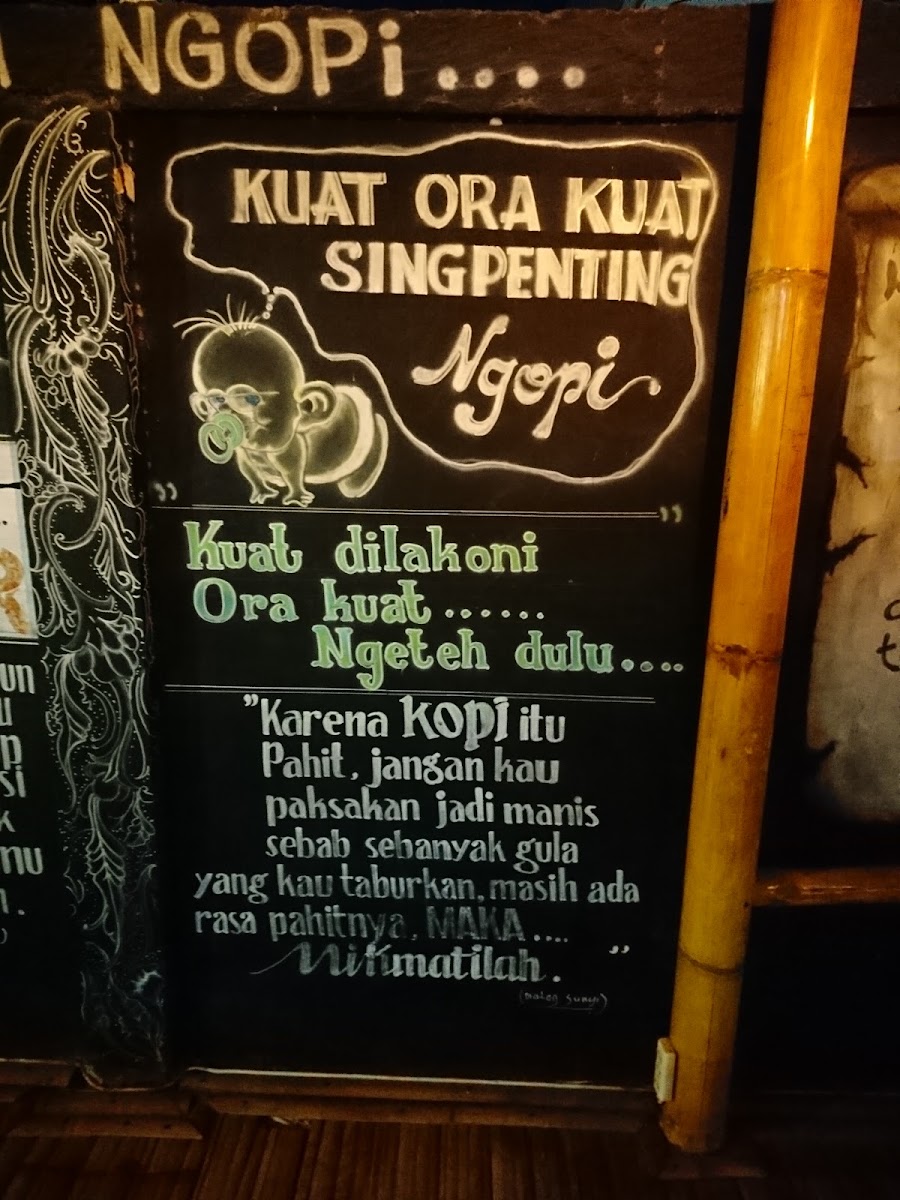 NGOPi ....
KUAT ORA KUAT
SING PENTING
Ngopi
Kuat dilakoni
Ora kuat ......
Ngeteh dulu ....
"Karena KOPI itu
Pahit, jangan kau
paksakan jadi manis
sebab sebanyak gula
yang kau taburkan, masih ada
rasa pahitnya, MAKA ....
Nikmatilah. "
un
u
p
si
k
mu